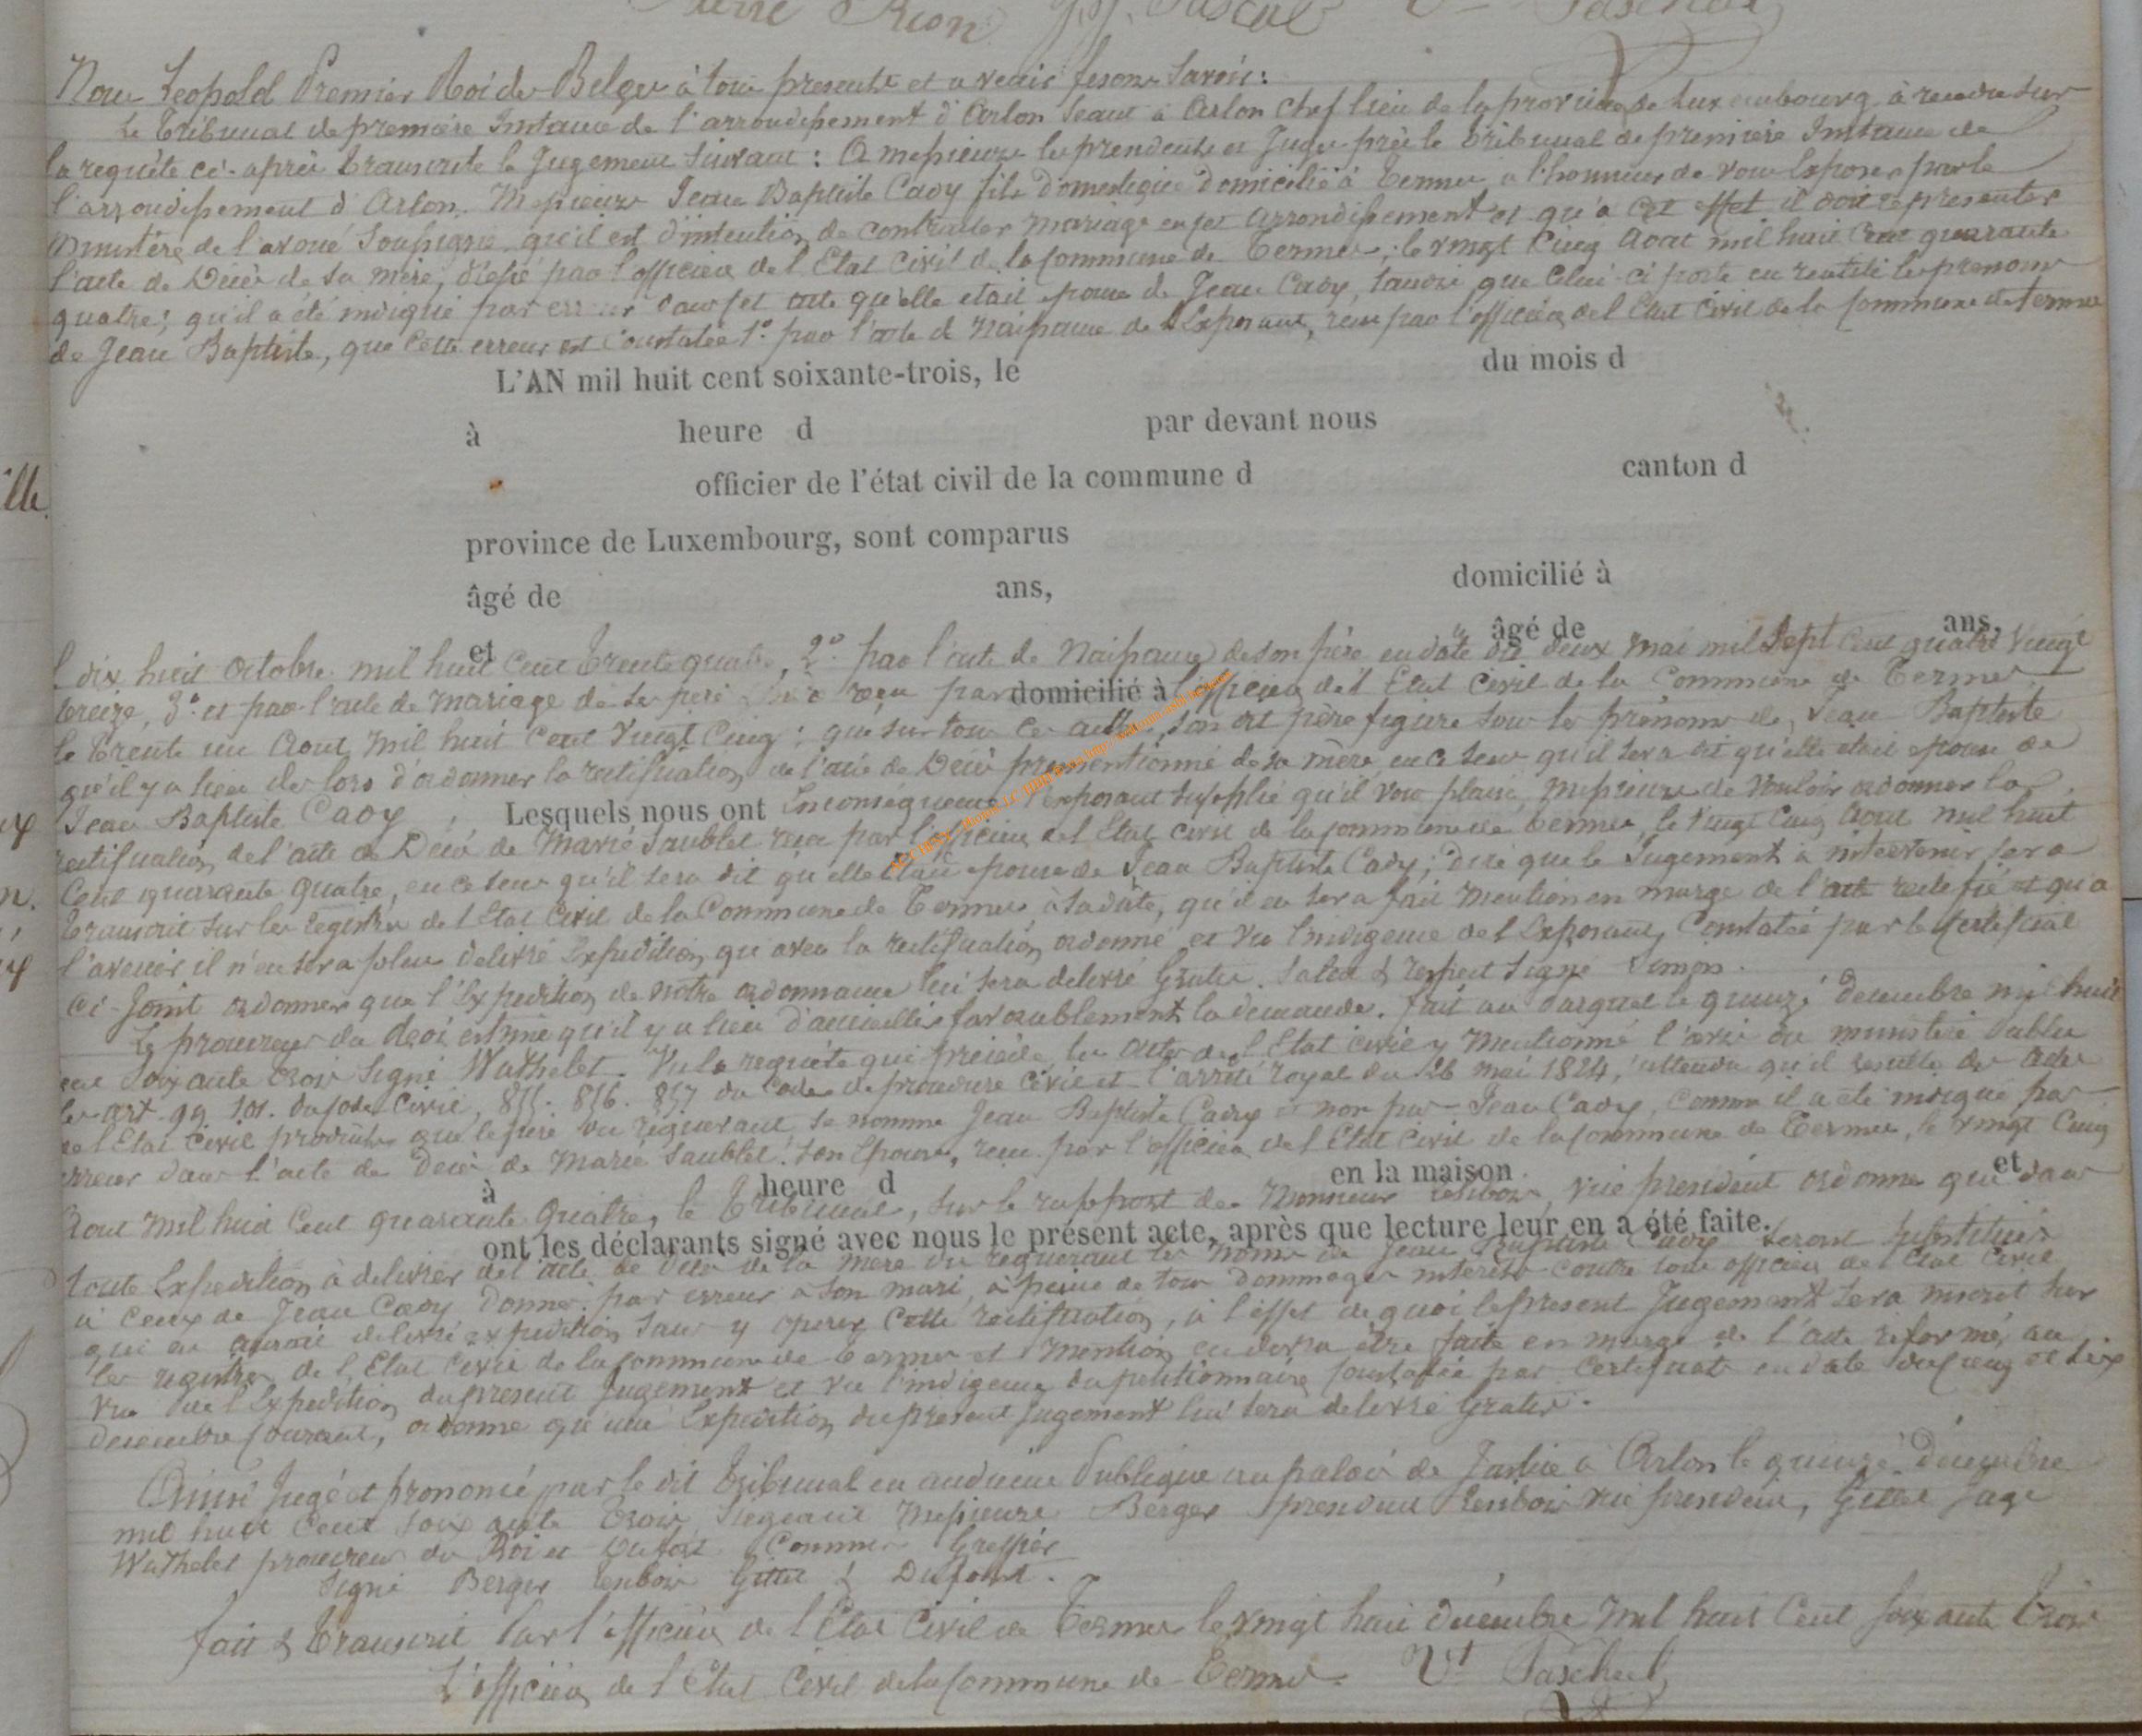 Pierre Rion J.J. Pascal Paschal
Nous Leopold Premier Roi des Belges à tous presents et a venir fesons Savoir :
Le Tribunal de premiere Instance de l'arrondissement d'Arlon Seant à Arlon chef lieu de la province de Luxembourg à rendu sur
la requête ci-après transcrite le Jugement Suivant : A messieurs les presidents et Juges près le tribunal de premiere Instance de
l'arrondissement d'Arlon. Messieurs Jean Baptiste Cady fils domestique domicilié à Termes a l'honneur de vous Exposer par le
Ministère de l'avoué Soussigné qu'il est d'intention de contracter mariage en cet arrondissement et qu'à cet effet il doit representer
l'acte de Décès de sa mère, dressé par l'officier de l'Etat Civil de la Commune de Termes, le vingt Cinq Aout mil huit Cent quarante
quatre ; qu'il a été indiqué par erreur dans cet acte qu'elle etait epouse de Jean Cady, tandis que Celui-ci porte en realité les prenoms
de Jean Baptiste, que Cette erreur est Constatée 1° par l'acte de Naissance de l'Exposant, reçu par l'officier de l'Etat Civil de la Commune de Termes
L'AN mil huit cent soixante-trois, le du mois d
à heure d par devant nous
ille
officier de l'état civil de la commune d canton d
province de Luxembourg, sont comparus
âgé de ans, domicilié à
et âgé de ans,
l dix huit Octobre mil huit Cent trente quatre, 2° par l'acte de Naissance de son père en date du deux mai mil Sept Cent quatre Vingt
treize, 3° et par l'acte de mariage de ses père reçu par l'officier de l'Etat Civil de la Commune de Termes
domicilié à
le trente un Aout mil huit Cent Vingt Cinq ; que sur tous ces actes son dit père figure sous les prénoms de Jean Baptiste
qu'il y a lieu des lors d'ordonner la rectification de l'acte de Décès prementionné de sa mère en ce sens qu'il sera dit qu'elle etait epouse de
Jean Baptiste Cady, Lesquels nous ont Inconséquence l'exposant supplie qu'il vous plaise, Messieurs de Vouloir ordonner la
rectification de l'acte de Décès de Marie Saublet reçu par l'officier de l'Etat Civil de la Commune de Termes, le Vingt Cinq Aout mil huit
Cent quarante quatre, en ce sens qu'il sera dit qu'elle etait epouse de Jean Baptiste Cady ; dire que le Jugement à intervenir sera
transcrit sur les registres de l'Etat Civil de la Commune de Termes à sa date, qu'il en sera fait Mention en marge de l'acte rectifié et qu'a
l'avenir il n'en sera plus delivré Expedition qu'avec la rectification ordonné et vu l'indigence de l'Exposant, Constatée par le Certificat
ci-Joint ordonner que l'Expedition de votre ordonnance lui sera delivré Gratis. Salut & respect Signé Simon.
Le procureur du Roi estime qu'il y a lieu d'accueillir favorablement la demande. fait au Parquet le quinze decembre mil huit
cent Soixante trois Signé Wathelet. Vu la requête qui précède, les actes de l'Etat Civil y Mentionné l'avis du ministère Public
les art. 99 101. du Code Civil, 855. 856. 857 du Code de procedure Civile et l'arrêté royal du 26 mai 1824, attendu qu'il resulte des actes
de l'Etat Civil produits que le père du requerant se nomme Jean Baptiste Cady et non pas Jean Cady, comme il a été indiqué par
erreur dans l'acte de Décès de Marie Saublet Son Epouse, reçu par l'officier de l'Etat Civil de la Commune de Termes, le vingt Cinq
à heure d en la maison et
Aout Mil huit Cent quarante Quatre, le Tribunal, Sur le rapport de Monsieur vice président ordonne que dans
ont les déclarants signé avec nous le présent acte, après que lecture leur en a été faite.
toute Expedition à delivrer de l'acte de Décès de la mère du requerant les noms de Jean Baptiste Cady seront substitués
à ceux de Jean Cady Donnes par erreur à Son mari, à peine de tous dommages interêts contre tout officier de l'Etat Civil
qui en aurait delivré expedition sans y operer Cette rectification, à l'effet de quoi le present Jugement sera inscrit sur
les registres de l'Etat Civil de la Commune de Termes et Mention en devra être faite en marge de l'acte reformé, au
vu de l'Expedition du present Jugement et vu l'indigence du petitionnaire Constatée par Certificats en date des Cinq et Six
decembre Courant, ordonne qu'une Expedition du present Jugement lui sera delivré Gratis.
Ainsi Jugé et prononcé par le dit Tribunal en audience Publique au palais de Justice à Arlon le quinze decembre
mil huit Cent Soixante trois Siegeant Messieurs Berger president vice president, Juge
Wathelet procureur du Roi et Dufost Commis Greffier
Signé Berger & Dufost.
fait & transcrit Par l'officier de l'Etat Civil de Termes le vingt huit decembre Mil huit Cent Soixante trois
L'officier de l'Etat Civil de la Commune de Termes. Vt Paschal